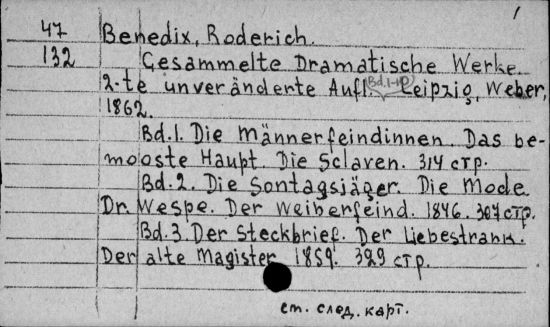 1
47 Benedix, Roderich.
132 Gesammelte Dramatische Werke.
2-te unveränderte Aufl. Bd.1-10 Leipzig, Weber,
1862.
Bd.1. Die Männerfeindinnen. Das be-
mooste Haupt. Die Sclaven. 314 стр.
Bd.2. Die Sontagsjäger. Die Mode.
Dr. Wespe. Der Weiberfeind. 1846. 307 стр.
Bd.3. Der Steckbrief. Der Liebestrank.
Der alte Magister 1859. 329 стр.
ст. след. карт.